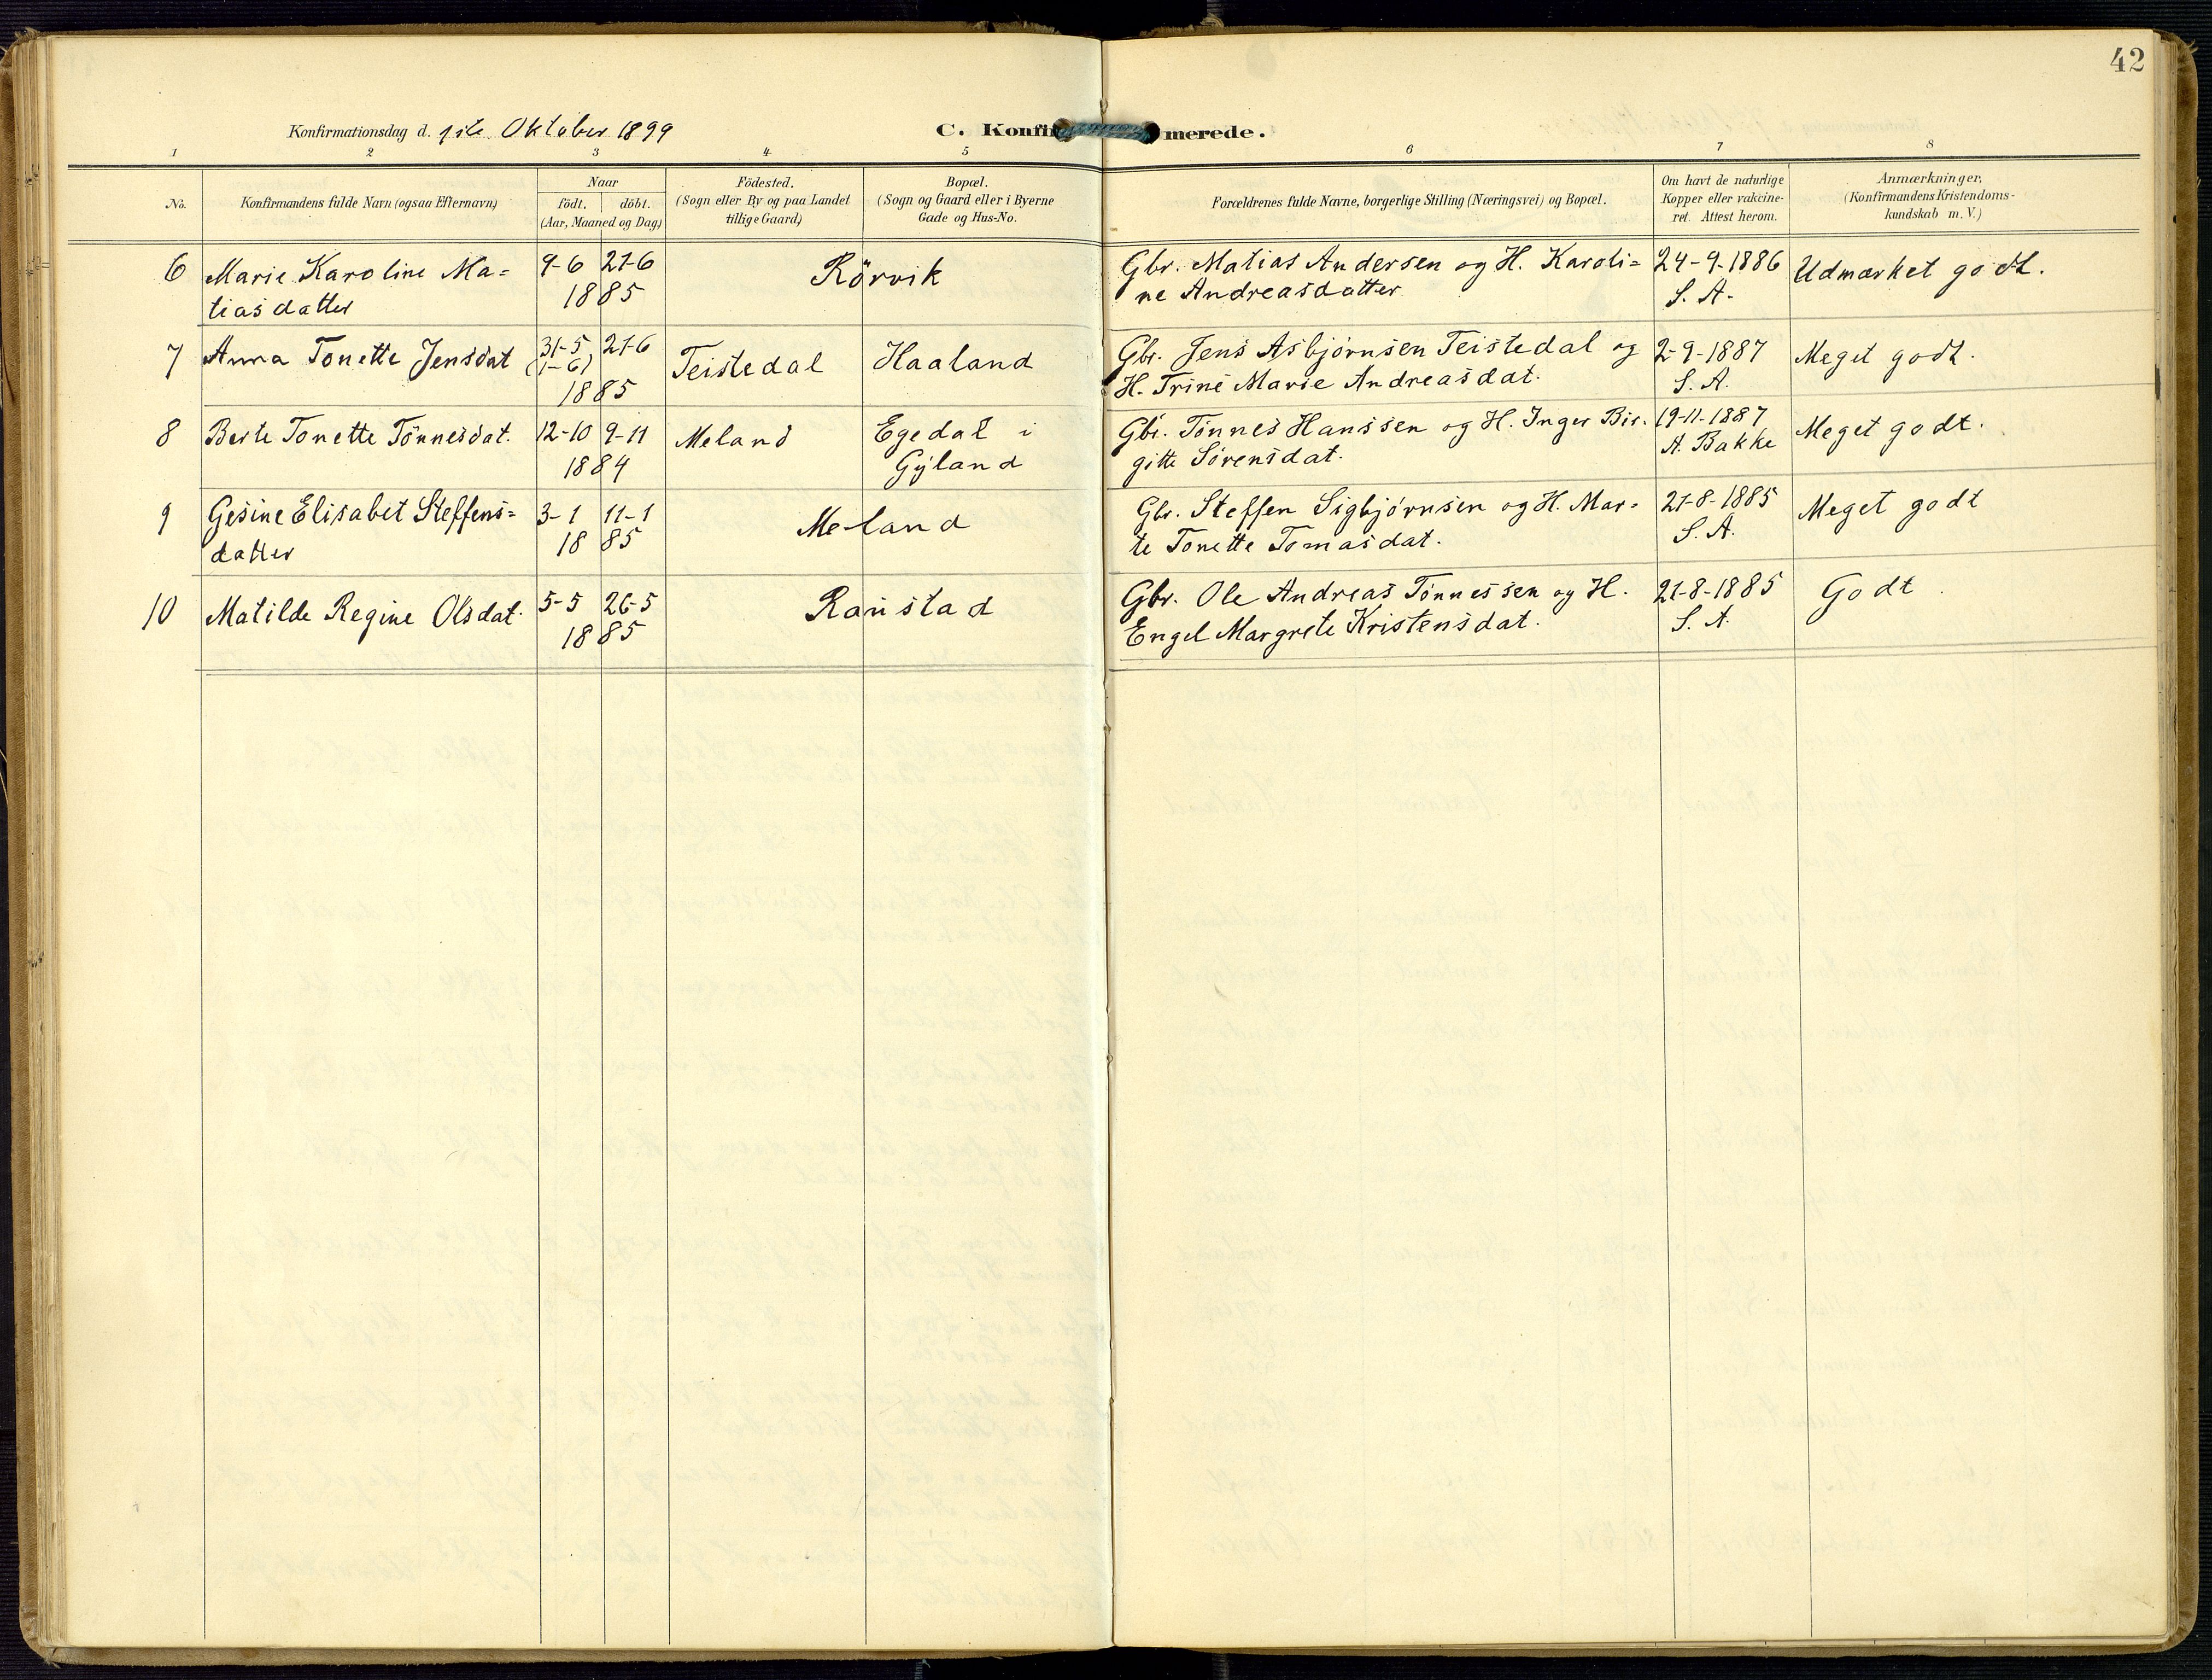 42
Konfirmationsdag d. 1ste Oktober 1899
C. Konfir merede.
1 2 3 4 5 6 7 8
No.
Konfirmandens fulde Navn (ogsaa Efternavn)
Naar
födt. döbt.
(Aar, Maaned og Dag)
Födested.
(Sogn eller By og paa Landet
tillige Gaard)
Bopæl.
(Sogn og Gaard eller i Byerne
Gade og Hus-No.
Forældrenes fulde Navne, borgerlige Stilling (Næringsvei) og Bopæl.
Om havt de naturlige
Kopper eller vakcine-
ret. Attest herom.
Anmærkninger,
(Konfirmandens Kristendoms-
kundskab m. V.)
6 Marie Karoline Ma= 9-6 21-6 Rörvik Gbr. Matias Andersen og H. Karoli= 24-9-1886 Udmærket godt.
tiasdatter 1885 ne Andreasdatter S. A.
7 Anna Tonette Jensdat 31-5 21-6 Teistedal Haaland Gbr. Jens Asbjørnsen Teistedal og 2-9-1887 Meget godt.
(1-6) 1885 H. Trine Marie Andreasdat. S. A.
8 Berte Tonette Tönnesdat. 12-10 9-11 Meland Egedal i Gbr. Tönnes Hanssen og H. Inger Bir. 19-11-1887 Meget godt.
1884 Gyland gitte Sörensdat. A. Bakke
9 Gesine Elisabet Steffens= 3-1 11-1 Meland Gbr. Steffen Sigbjørnsen og H. Mar= 21-8-1885 Meget godt
datter 1885 te Tonette Tomasdat. S. A.
10 Matilde Regine Olsdat. 5-5 26-5 Raustad Gbr. Ole Andreas Tönnessen og H. 21-8-1885 Godt
1885 Engel Margrete Kristensdat. S. A.